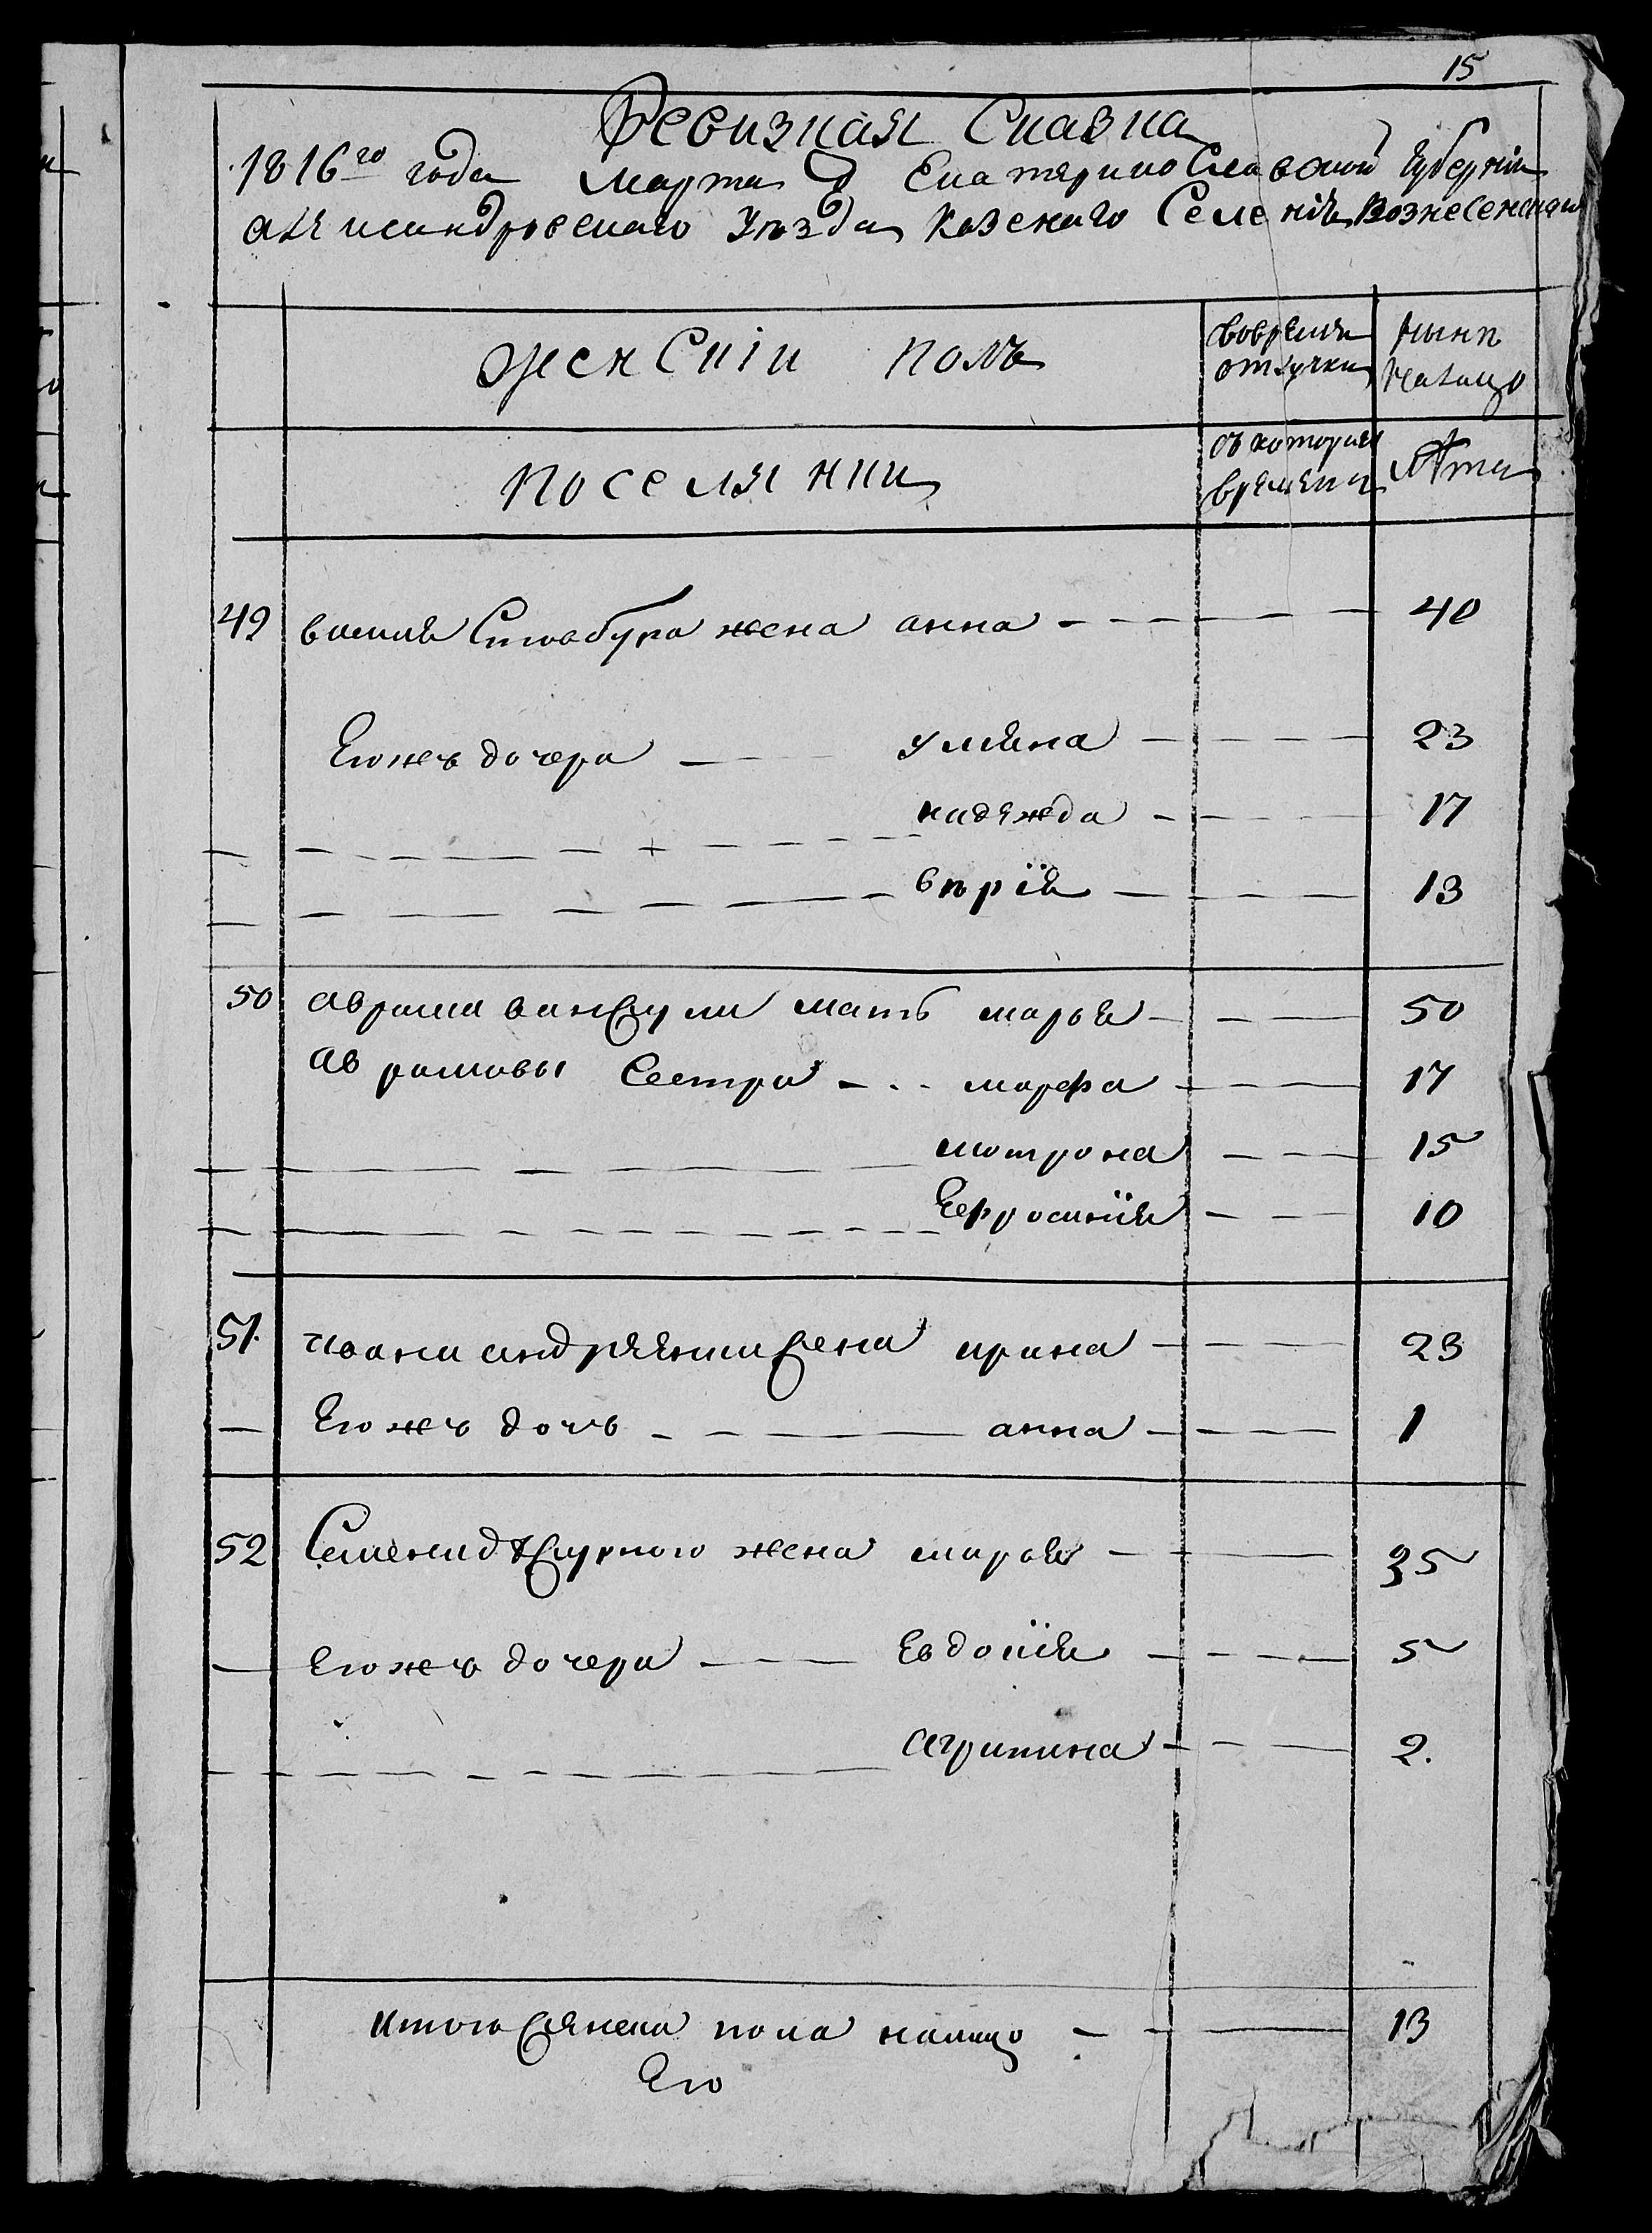 15
Ревизная Сказка
1816го года Марта Д Екатерино Славской губернии
александровского Уезда Казенаго Селенія Вознесенскаго
женскій полъ
вовремен отлучки
ныне налицо
поселянки
съ котораго времени
лета
49 василя жена анна 40
Егожъ дочери ульяна 23
надежда 17
вѣрія 13
50 аврама мать марья 50
аврамовы Сестри марфа 17
мотрона 15
Ефросинія 10
51. ивана андреянша жена ирина 23
Егожъ дочъ анна 1
52 Семена жена марья 35
Егожъ дочери Евдокія 5
агрипина 2.
итого женска пола налицо 13
Его